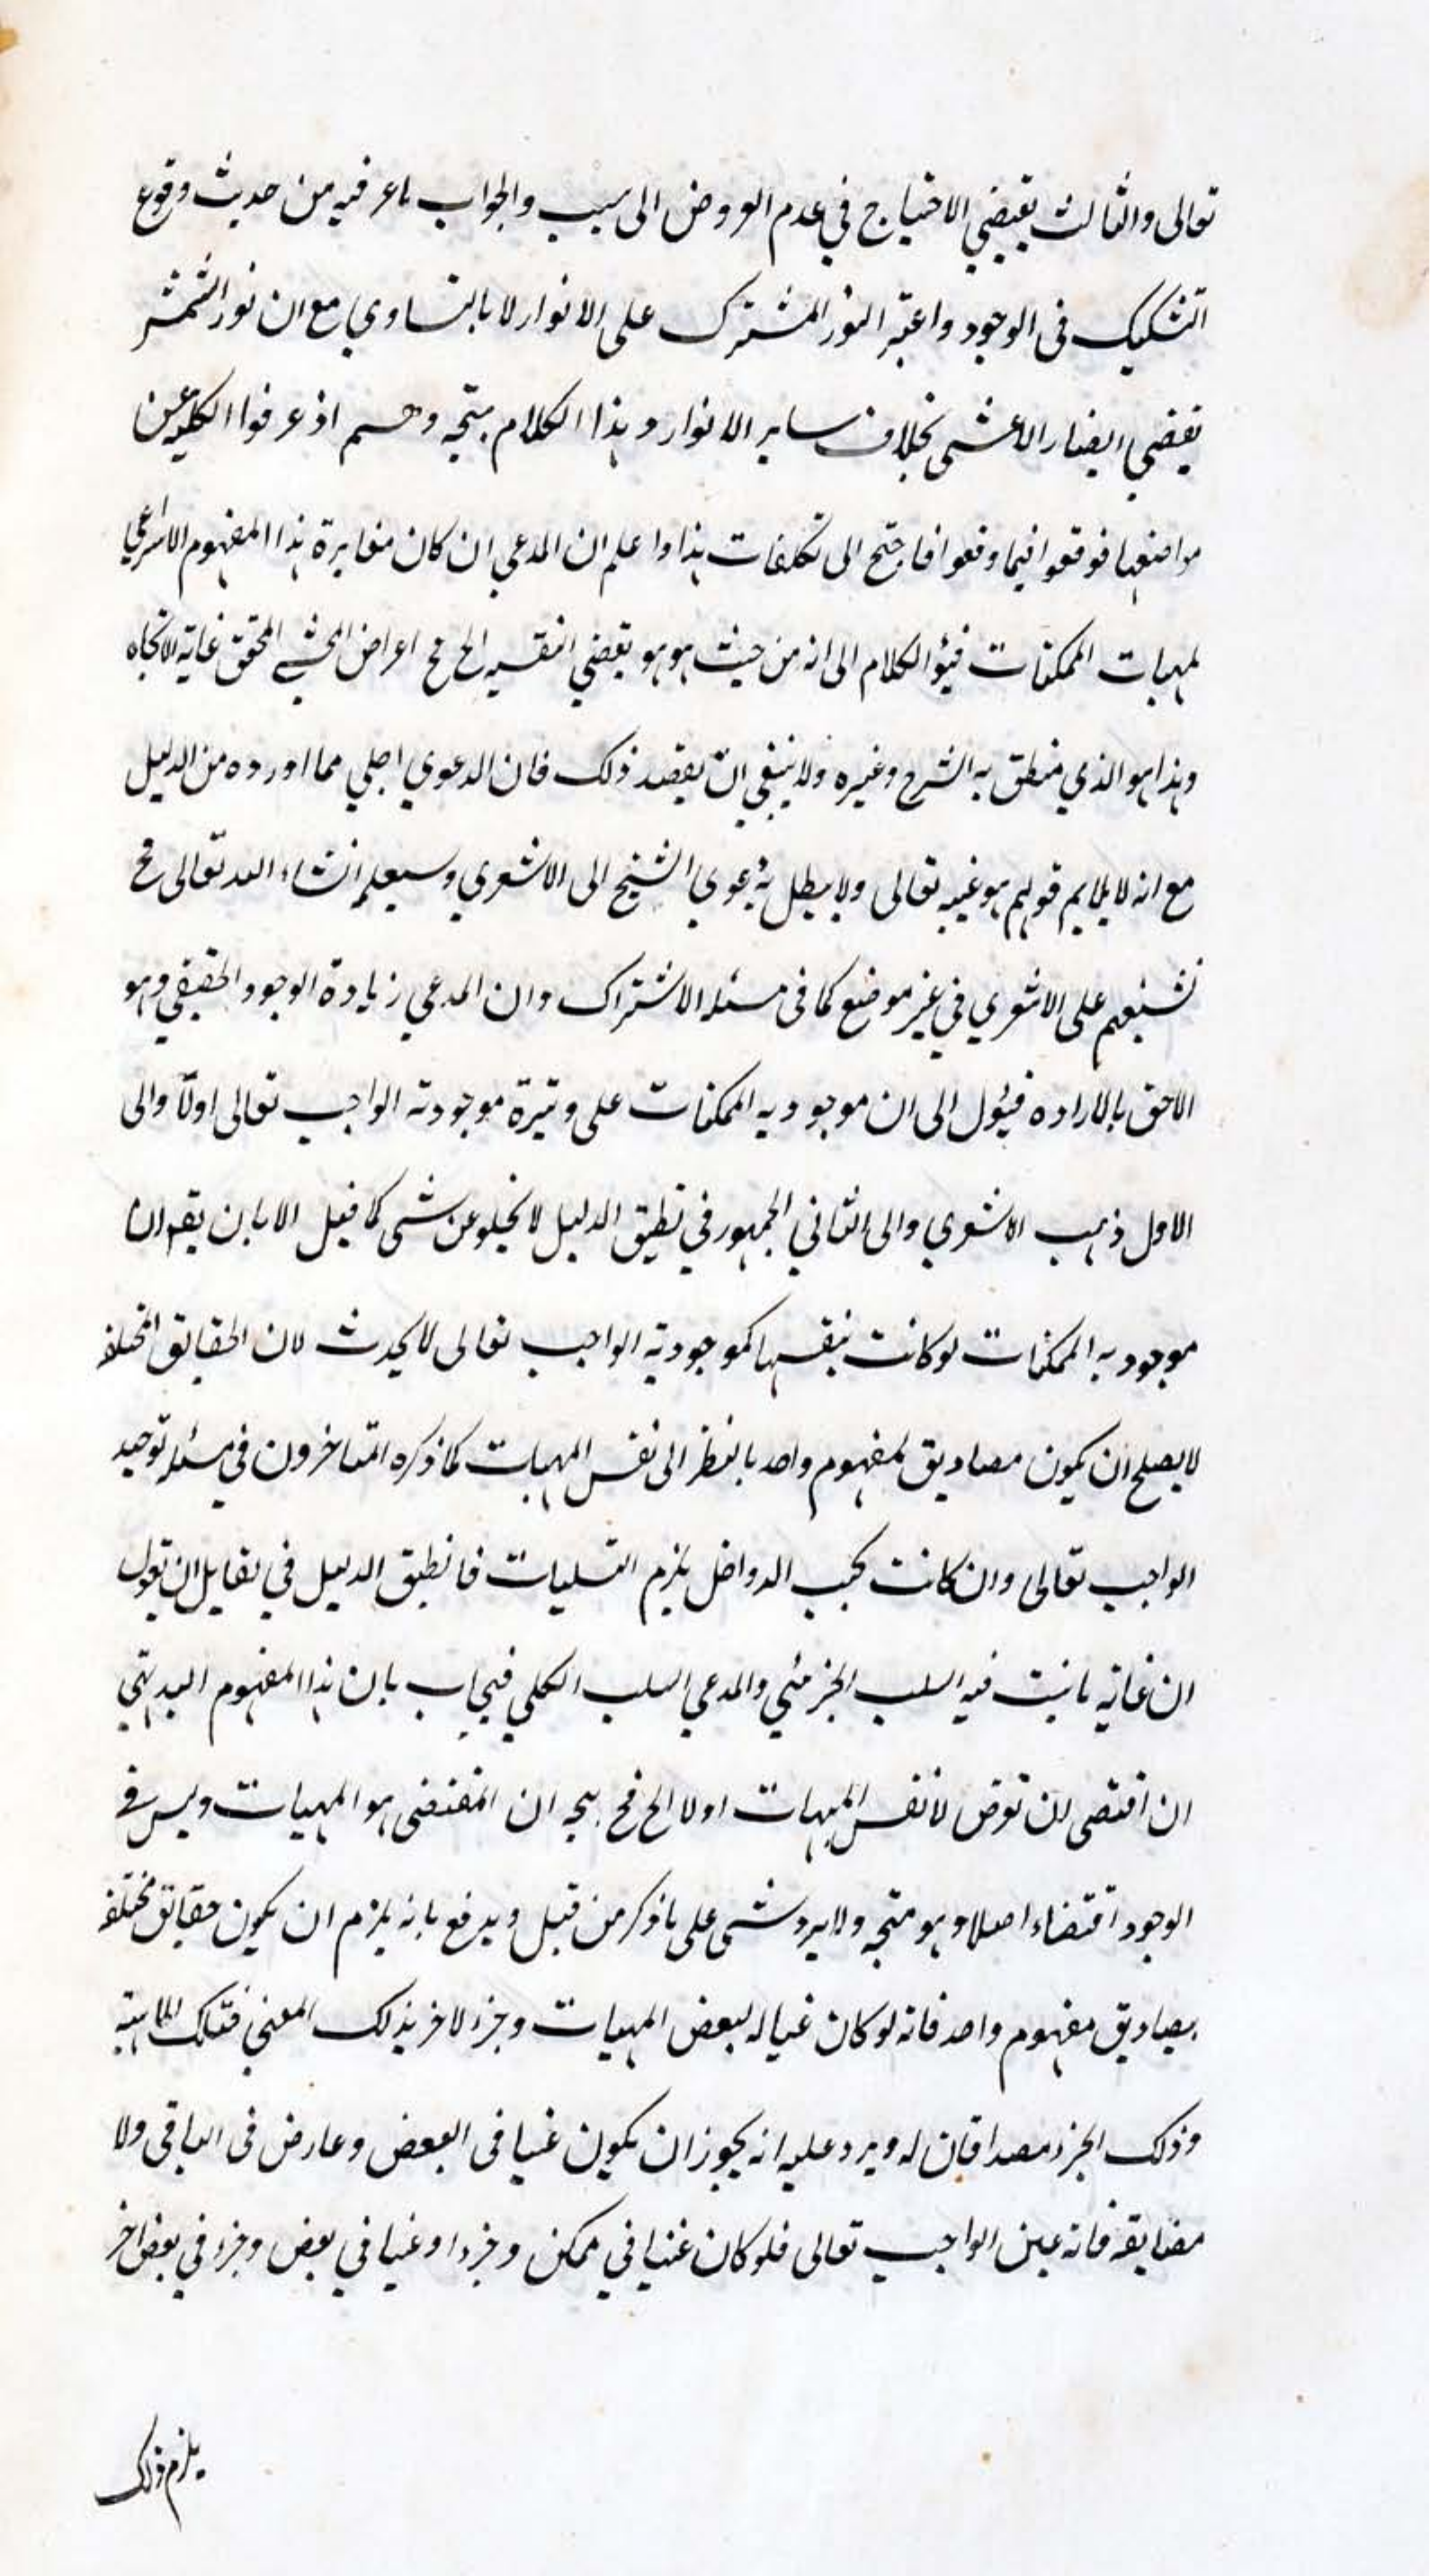 تعالى والثالث يقتضي الاحتياج في عدم العروض الى سبب والجواب ما عرفته من حديث وقوع
التشكيك فى الوجود واعتبر النور المشترك على الانوار لا بالتساوي مع ان نور الشمس
يقتضي ابصار الاعشى بخلاف ساير الانوار وهذا الكلام متجه وهم اذ عرفوا الكلم عن
مواضعها فوقعوا فيما وقعوا فاحتج الى تكلفات هذا واعلم ان المدعي ان كان مغايرة هذا المفهوم الانتزاعي
لمهيات الممكنات فيؤل الكلام الى انه من حيث هو هو يقتضي الخ فح اعراض المحشي المحقق غاية الاتجاه
وهذا هو الذي منطق به الشرح وغيره ولا ينبغي ان يقصد ذلك فان الدعوي اجلي مما اورده من الدليل
مع انه لا يلايم قولهم هو عينه تعالى ولا يبطل به دعوي الشيخ الى الاشعري وسيعلم انشاء الله تعالى فح
تشنيعهم على الاشعري في غير موضع كما فى مسئلة الاشتراك وان المدعي زيادة الوجود الحقيقي وهو
الاحق بالارادة فيؤل الى ان موجودية الممكنات على وتيرة موجودته الواجب تعالى اولا والى
الاول ذهب الاشعري والى الثاني الجمهور في تطبيق الدليل لا يخلو عن شى كما قيل الا بان يقه ان
موجودية الممكنات لو كانت بنفسها كموجودية الواجب تعالى لا يحدث لان الحقايق المختلفة
لا يصلح ان يكون مصاديق لمفهوم واحد بالنظر الى نفس المهيات كما ذكره المتاخرون في مسئلة توحيد
الواجب تعالى وان كانت بحسب الدواخل يلزم التسليات فانطبق الدليل في لقايل ان يقول
ان غاية ما يثبت فيه السلب الجزئي والمدعي السلب الكلي فيجاب بان هذا المفهوم البديهي
ان اقتضى ان توض لانفس المهيات اولا الخ فح يتجه ان المقتضى هو المهيات وليس في
الوجود اقتضاء اصلا وهو متجه ولا يرد شى على ما ذكر من قبل ويدفع بانه يلزم ان يكون حقايق مختلفة
مصاديق مفهوم واحد فانه لو كان عينا له لبعض المهيات وجزء لاخر بذلك المعني فتلك الماهية
وذلك الجزء مصداقان له ويرد عليه انه يجوز ان يكون عينا فى البعض وعارض فى الباقي ولا
مضايقة فانه عين الواجب تعالى فلو كان عينا في ممكن وجزء او عينا في بعض وجزء في بعض اخر
يلزم ذلك